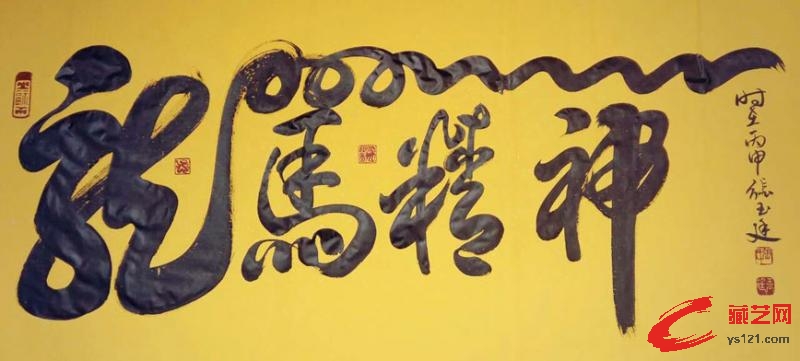 龍馬精神
时在丙申張玉廷
藏艺网
ys121.com